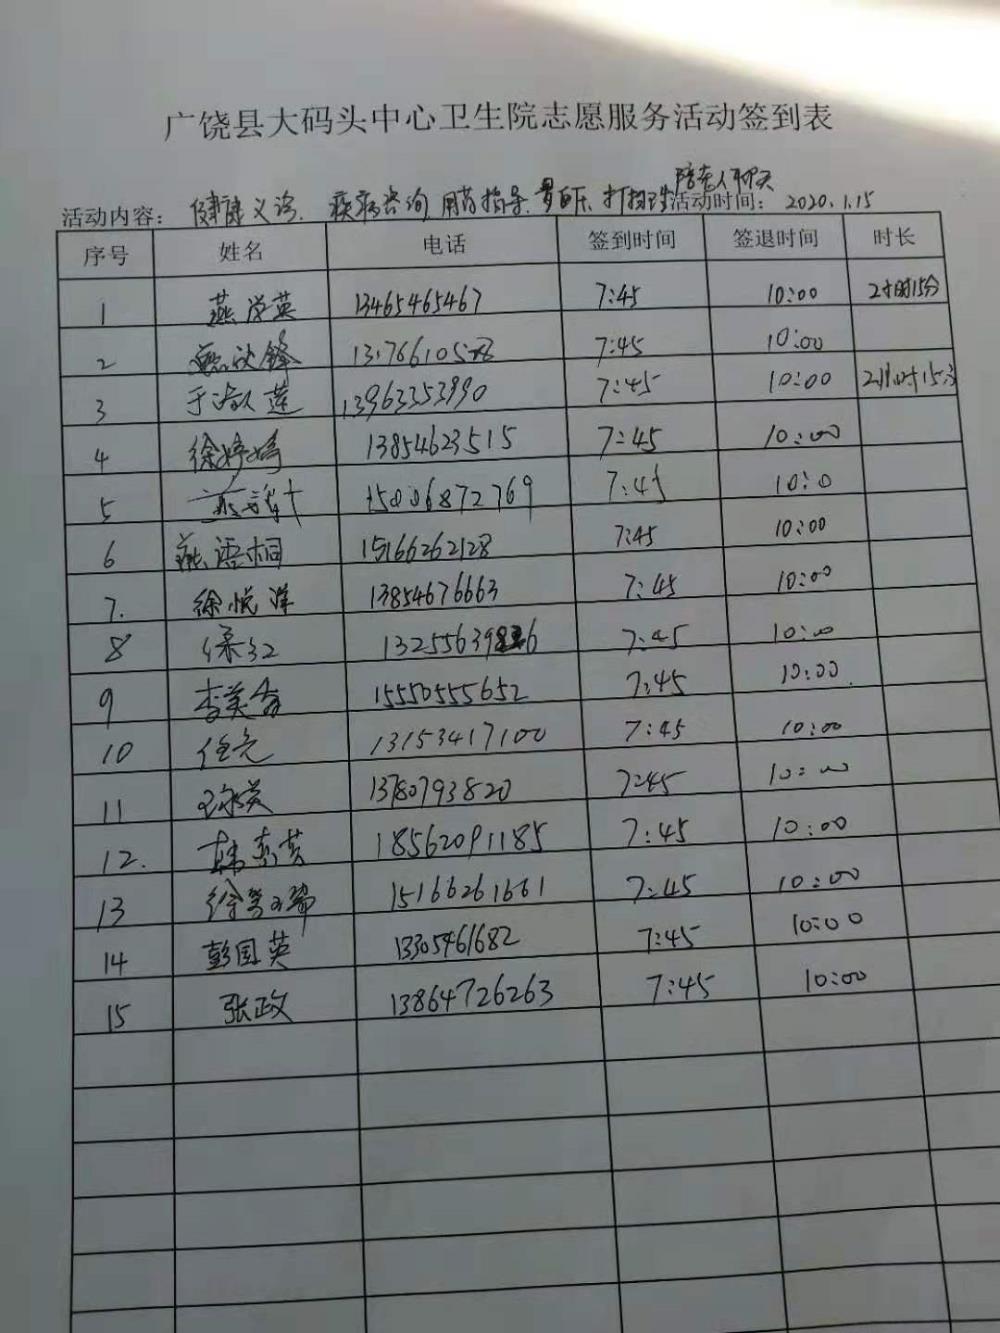 广饶县大码头中心卫生院志愿服务活动签到表
陪老人聊天
活动内容: 健康义诊. 疾病咨询 用药指导. 打扫 活动时间: 2020.1.15
序号 姓名 电话 签到时间 签退时间 时长
1 燕学英 13465465467 7:45 10:00 2小时15分
2 7:45 10:00
3 于 莲 13963353990 7:45 10:00 2小时15分
4 徐婷婷 13854623515 7:45 10:00
5 15006872769 7:45 10:0
6 燕语桐 15166262128 7:45 10:00
7. 徐悦洋 13854676663 7:45 10:00
8 7:45 10:00
9 李美香 15550555652 7:45 10:00
10 任亮 13153417100 7:45 10:00
11 13780793820 7:45 10:00
12. 韩素芸 18562091185 7:45 10:00
13 徐 瑞 15166261661 7:45 10:00
14 彭国英 13305461682 7:45 10:00
15 张政 13864726263 7:45 10:00